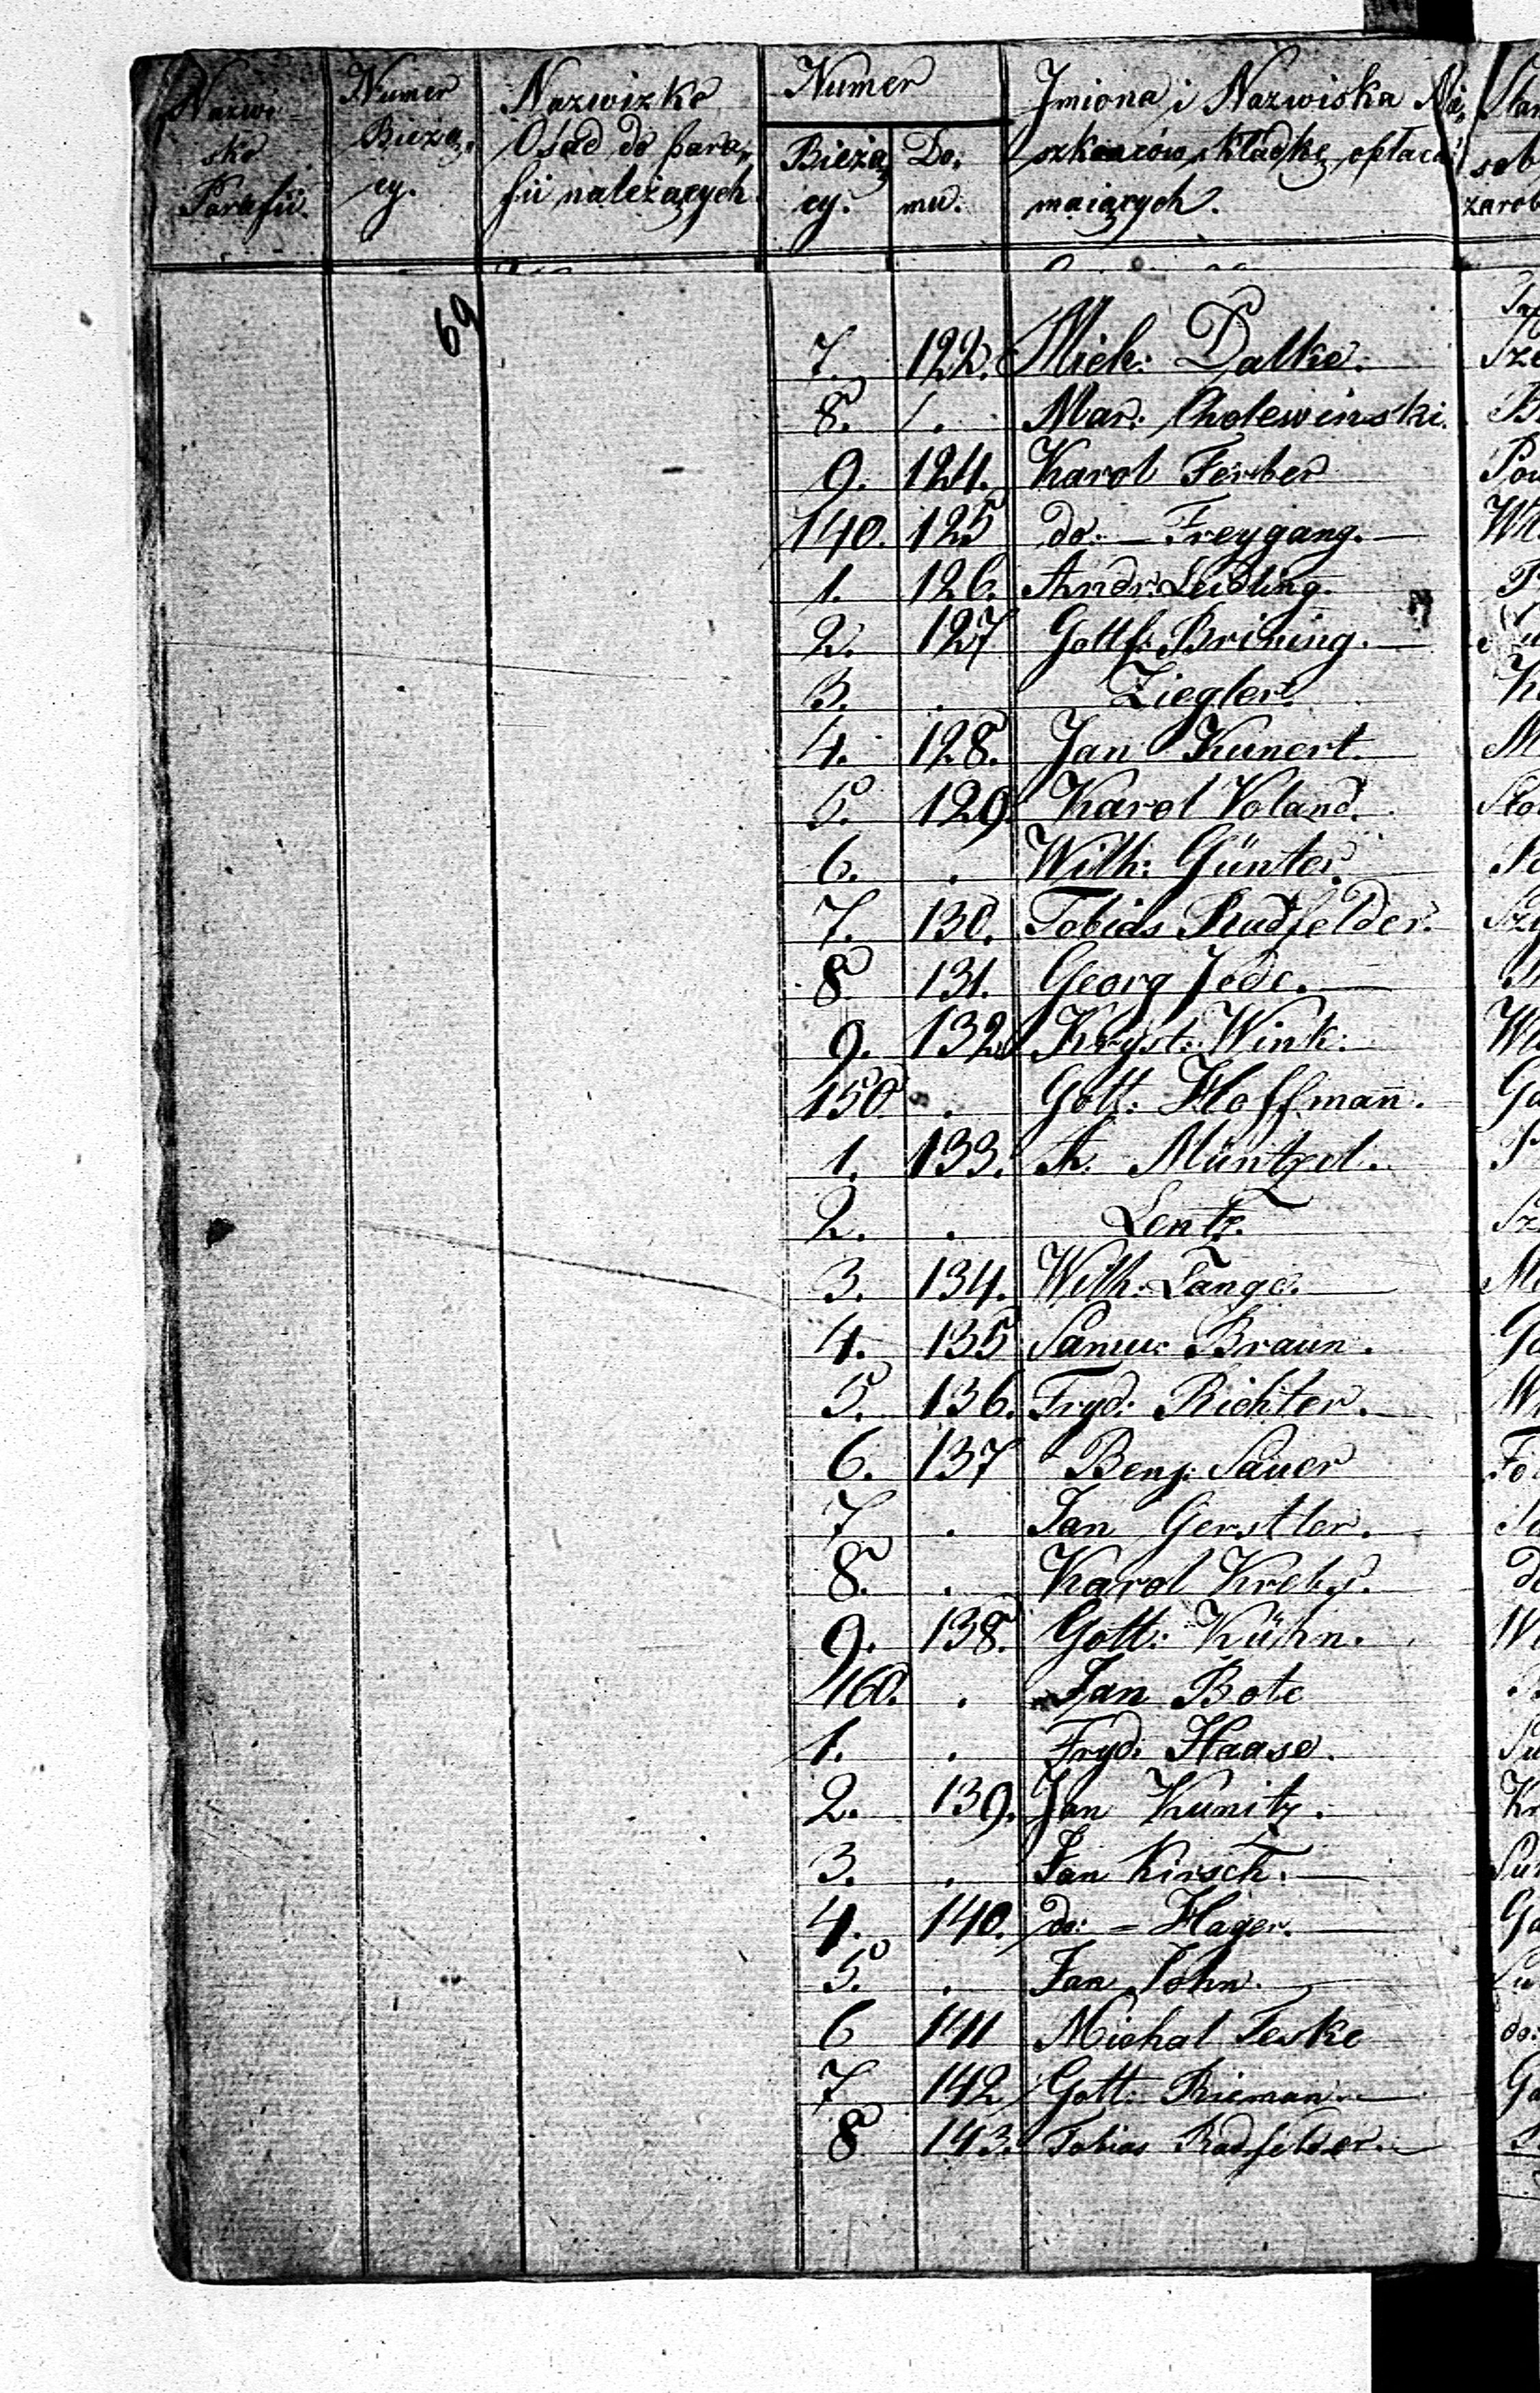 Nazwi-
sko
Parafii.
Numer
Bieżą-
cy.
Nazwizko
Osad do para-
fii należących
Numer
Bieżą
cy.
Do-
mu.
Jmiona i Nazwiska Mie-
szkańców składkę opłacać
maiących.
69
7. 122. Mich: Dalke.
8. /. Mar: Cholewinski.
9. 124. Karol Ferber
140. 125 do: — Freygang. —
1. 126. Andr: Leidling.
2. 127 Gottf: Brining. —
3. . Ziegler.
4. 128. Jan Kunert. —
5. 129. Karol Voland.
6. . Wilh: Günter.
7. 130. Tobias Radfelder.
8 131. Georg Jede. —
9. 132. Kryst: Wink: —
150 . Gott: Hoffmañ.
1. 133. A. Müntzel.
2. . Lentz.
3. 134. Wilh: Lange. —
4. 135 Samu: Braun.
5. 136. Fryd: Richter. —
6. 137 Benj: Sauer
7 . Jan Gerstler. —
8. . Karol Krebs.
9. 138. Gott: Kühn.
160. . Jan Bote
1. . Fryd: Haase.
2. 139. Jan Kunitz.
3. . Jan Kirsch. —
4. 140. do: = Hager. —
5. . Jan John. —
6 141 Michal Teske
7 142 Gott: Rieman —
8 143. Tobias Radfelder. —